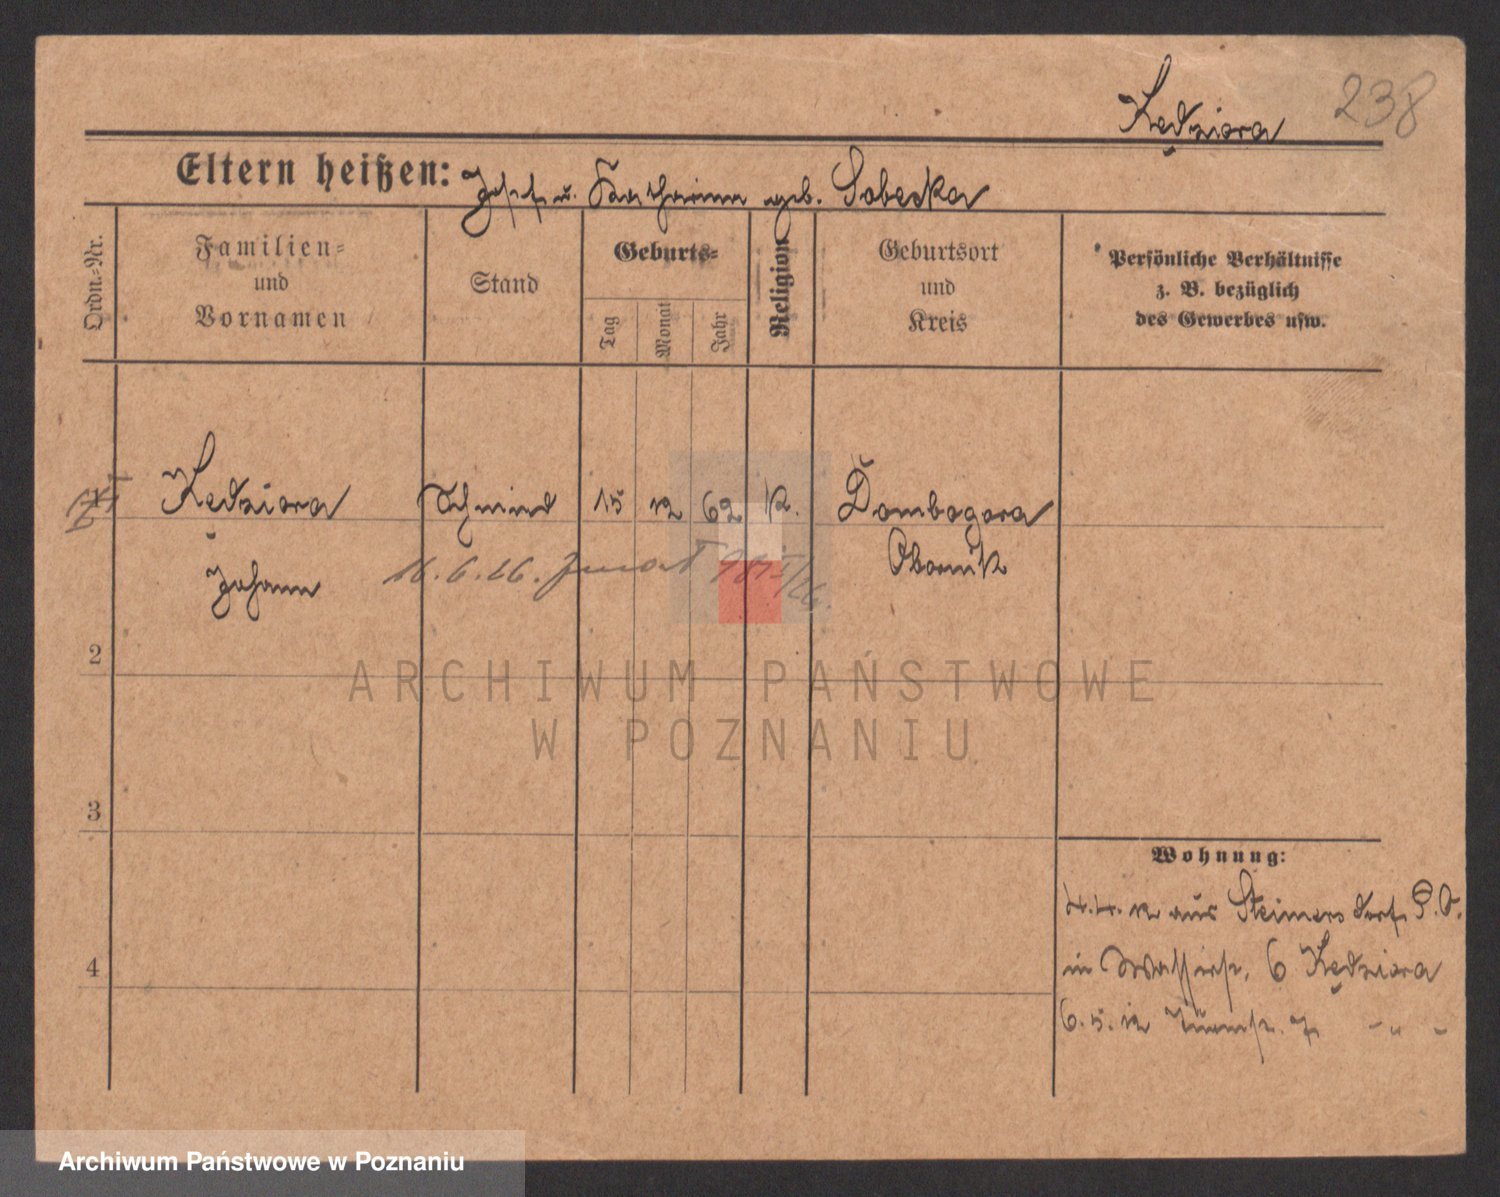 238
Kędziora
Eltern heißen: Josef u. Katharina geb. Sobecka
Ordn.=Nr.
Familien=
und
Vornamen
Stand
Geburts=
Tag
Monat
Jahr
Religion
Geburtsort
und
Kreis
Persönliche Verhältnisse
z. B. bezüglich
des Gewerbes usw.
1 Kędziora Schmied 15 12 62 K. Dombogora
Johann Obornik
16.6.26.
2
3
4
Wohnung:
4.4.12 aus Steimersdorf P.O.
in Wasserstr. 6 Kędziora
6.5.12 Turmstr. 7 - " -
ARCHIWUM PAŃSTWOWE
W POZNANIU
Archiwum Państwowe w Poznaniu